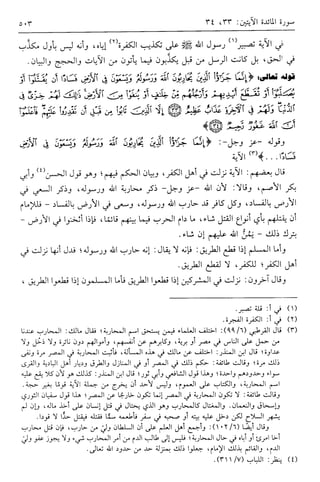 سورة المائدة الآيتين: ٣٣، ٣٤
٥٠٣
في الآية تصبير(١) رسول الله ﷺ على تكذيب الكفرة(٢) إياه، وأنه ليس بأول مكذَّب
في الحق، بل كانت الرسل من قبل يكذّبون فيما يأتون من الآيات والحجج والبيان.
قوله تعالى: ﴿إِنَّمَا جَزَٰٓؤُاْ ٱلَّذِينَ يُحَارِبُونَ ٱللَّهَ وَرَسُولَهُۥ وَيَسْعَوْنَ فِى ٱلْأَرْضِ فَسَادًا أَن يُقَتَّلُوٓاْ أَوْ
يُصَلَّبُوٓاْ أَوْ تُقَطَّعَ أَيْدِيهِمْ وَأَرْجُلُهُم مِّنْ خِلَٰفٍ أَوْ يُنفَوْاْ مِنَ ٱلْأَرْضِ ذَٰلِكَ لَهُمْ خِزْىٌ فِى
ٱلدُّنْيَا وَلَهُمْ فِى ٱلْءَاخِرَةِ عَذَابٌ عَظِيمٌ ﴿٣٣﴾ إِلَّا ٱلَّذِينَ تَابُواْ مِن قَبْلِ أَن تَقْدِرُواْ عَلَيْهِمْ فَٱعْلَمُوٓاْ
أَنَّ ٱللَّهَ غَفُورٌ رَّحِيمٌ ﴿٣٤﴾
وقوله -عز وجل-: ﴿إِنَّمَا جَزَٰٓؤُاْ ٱلَّذِينَ يُحَارِبُونَ ٱللَّهَ وَرَسُولَهُۥ وَيَسْعَوْنَ فِى ٱلْأَرْضِ
فَسَادًا...﴾(٣) الآية
قال بعضهم: الآية نزلت في أهل الكفر، وبيان الحكم فيهم؛ وهو قول الحسن(٤) وأبي
بكر الأصم، وقالا: لأن الله -عز وجل- ذكر محاربة الله ورسوله، وذكر السعي في
الأرض بالفساد، وكل كافر قد حارب الله ورسوله، وسعى في الأرض بالفساد - فللإمام
أن يقتلهم بأي أنواع القتل شاء، ما دام الحرب فيما بينهم قائمًا، فإذا أثخنوا في الأرض -
يترك ذلك - يَمُنُّ الله عليهم إن شاء.
وأما المسلم إذا قطع الطريق: فإنه لا يقال: إنه حارب الله ورسوله؛ فدل أنها نزلت في
أهل الكفر؛ للكفر، لا لقطع الطريق.
وقال آخرون: نزلت في المشركين إذا قطعوا الطريق فأما المسلمون إذا قطعوا الطريق ،
(١) في أ: قلة تصبر.
(٢) في أ: الكفرة الفجرة.
(٣) قال القرطبي (٩٩/٦): اختلف العلماء فيمن يستحق اسم المحاربة؛ فقال مالك: المحارب عندنا
من حمل على الناس في مصر أو برية، وكابرهم عن أنفسهم، وأموالهم دون نائرة ولا ذحل ولا
عداوة؛ قال ابن المنذر: اختلف عن مالك في هذه المسألة، فأثبت المحاربة في المصر مرة ونفى
ذلك مرة؛ وقالت طائفة: حكم ذلك في المصر أو في المنازل والطرق وديار أهل البادية والقرى
سواء وحدودهم واحدة؛ وهذا قول الشافعي وأبي ثور؛ قال ابن المنذر: كذلك هو لأن كلا يقع عليه
اسم المحاربة، والكتاب على العموم، وليس لأحد أن يخرج من جملة الآية قومًا بغير حجة.
وقالت طائفة: لا تكون المحاربة في المصر إنما تكون خارجًا عن المصر؛ هذا قول سفيان الثوري
وإسحاق والنعمان. والمغتال كالمحارب وهو الذي يحتال في قتل إنسان على أخذ ماله، وإن لم
يشهر السلاح لكن دخل عليه بيته أو صحبه في سفر فأطعمه سمًّا فقتله فيقتل حدًّا لا قودا.
وقال أيضًا (١٠٢/٦): وأجمع أهل العلم على أن السلطان وليّ من حارب، فإن قتل محارب
أخا امرئ أو أباه في حال المحاربة؛ فليس إلى طالب الدم من أمر المحارب شيء، ولا يجوز عفو وليّ
الدم، والقائم بذلك الإمام، جعلوا ذلك بمنزلة حد من حدود الله تعالى.
(٤) ينظر: اللباب (٣١١/٧)